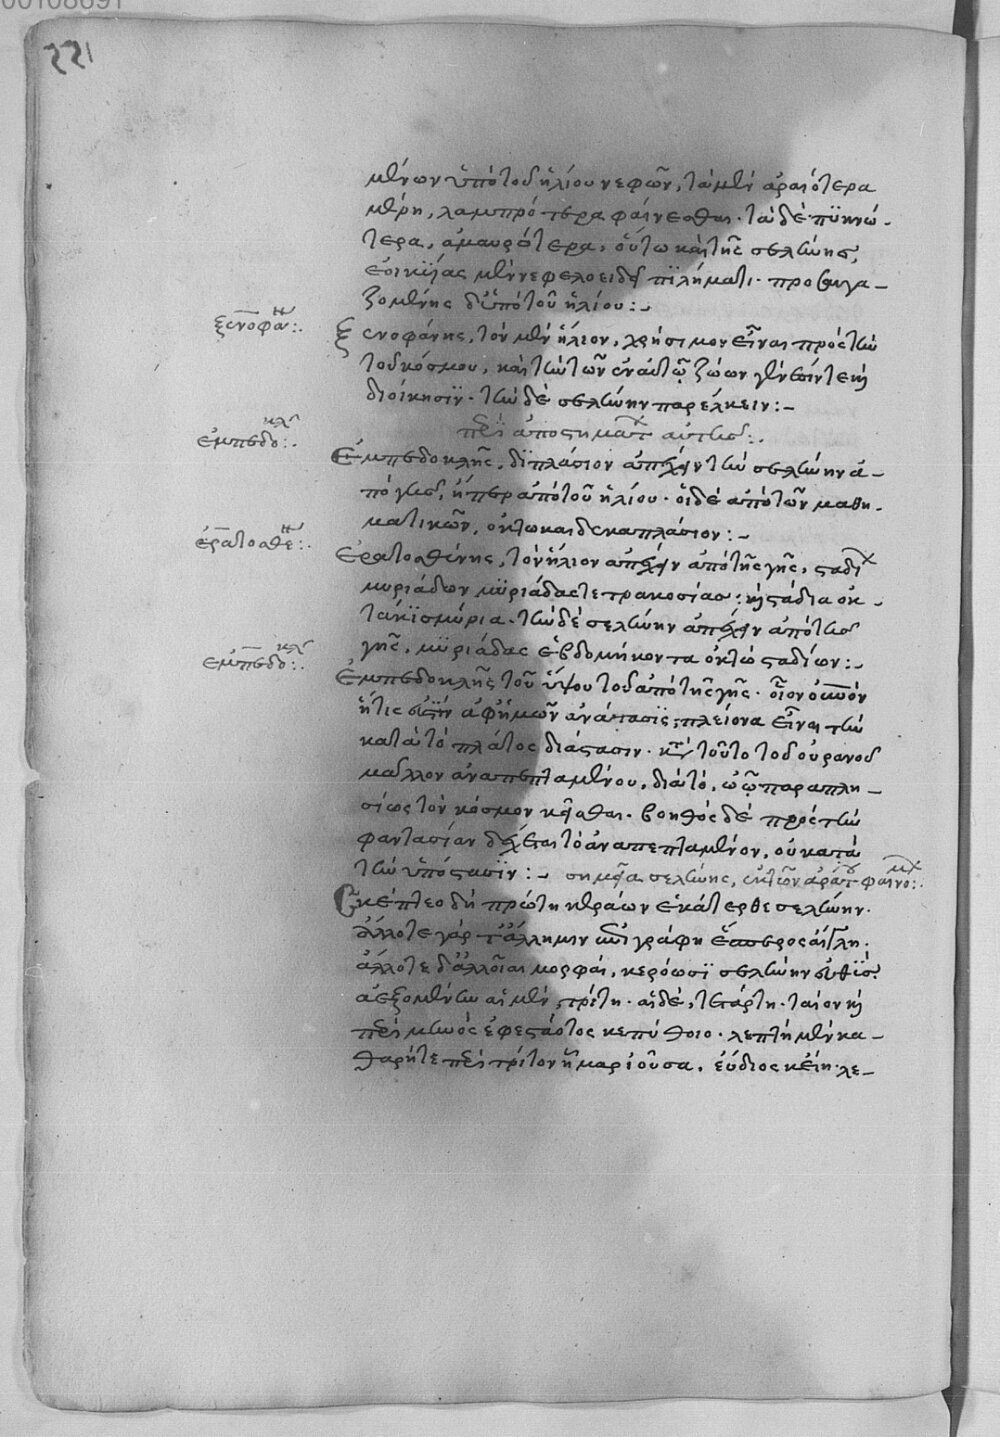 221
μένων ὑπὸ τοῦ ἡλίου νεφῶν, τὰ μὲν ἀραιότερα
μέρη, λαμπρότερα φαίνεσθαι· τὰ δὲ πϋκνό-
τερα, ἀμαυρότερα, οὕτω καὶ τῆς σελήνης,
ἐοικυίας μὲν νεφελοειδεῖ πϊλήματι· προσαυγα-
ζομένης δ' ὑπὸ τοῦ ἡλίου:-
ξενοφάνη:.
Ξενοφάνης, τὸν μὲν ἥλιον, χρήσιμον εἶναι πρὸς τὴν
τοῦ κόσμου, καὶ τὴν τῶν ἐν αὐτῷ ζώων γένεσίν τε καὶ
διοίκησϊν· τὴν δὲ σελήνην παρέλκειν:-
περὶ ἀποστημάτ αὐτῆς:.
ἐμπεδοκλ:.
Ἐμπεδοκλῆς, διπλάσιον ἀπέχειν τὴν σελήνην ἀ-
πὸ γῆς, ἤπερ ἀπὸ τοῦ ἡλίου· οἱ δὲ ἀπὸ τῶν μαθη-
ματικῶν, ὀκτωκαιδεκαπλάσιον:-
ἐρατοσθέν:.
Ἐρατοσθένης, τὸν ἥλιον ἀπέχειν ἀπὸ τῆς γῆς, σταδί
μυριάδων μϋριάδας τετρακοσίας: καὶ στάδια ὀκ-
τάκϊσμύρια· τὴν δὲ σελήνην ἀπέχειν ἀπὸ τῆς
γῆς, μϋριάδας ἑβδομήκοντα ὀκτὼ σταδίων:-
ἐμπεδοκλ:.
Ἐμπεδοκλῆς τοῦ ὕψου τοῦ ἀπὸ τῆς γῆς· οἷον
ἥτις ἐστὶν ἀφ' ἡμῶν ἀνάτασϊς, πλείονα εἶναι τὴν
κατὰ τὸ πλάτος διάστασιν· κατὰ τοῦτο τοῦ οὐρανοῦ
μᾶλλον ἀναπεπταμένου, διὰ τὸ, ὠῷ παραπλη-
σίως τὸν κόσμον κεῖσθαι· βοηθὸς δὲ πρὸς τὴν
φαντασίαν δέχεται τὸ ἀναπεπταμένον, οὐ κατὰ
τὴν ὑπόστασϊν:- σημεῖα σελήνης, ἐκ τῶν ἀράτου φαινομ:.
Σκέπτεο δὴ πρώτη κεράων ἑκάτερθε σελήνην·
ἄλλοτε γάρ τ' ἄλλη μιν ἐπιγράφη ἕσπερος αἴγλη·
ἄλλοτε δ' ἀλλοῖαι μορφαὶ, κερόωσϊ σελήνην εὐθὺς
ἀεξομένην αἱ μὲν, τρίτη· αἱ δὲ, τετάρτη· τάων καὶ
περὶ μηνὸς ἐφεσταότος κε πύθοιο· λεπτὴ μὲν κα-
θαρή τε περὶ τρίτον ἦμαρ ἰοῦσα, εὔδιος κ' εἴη· λε-